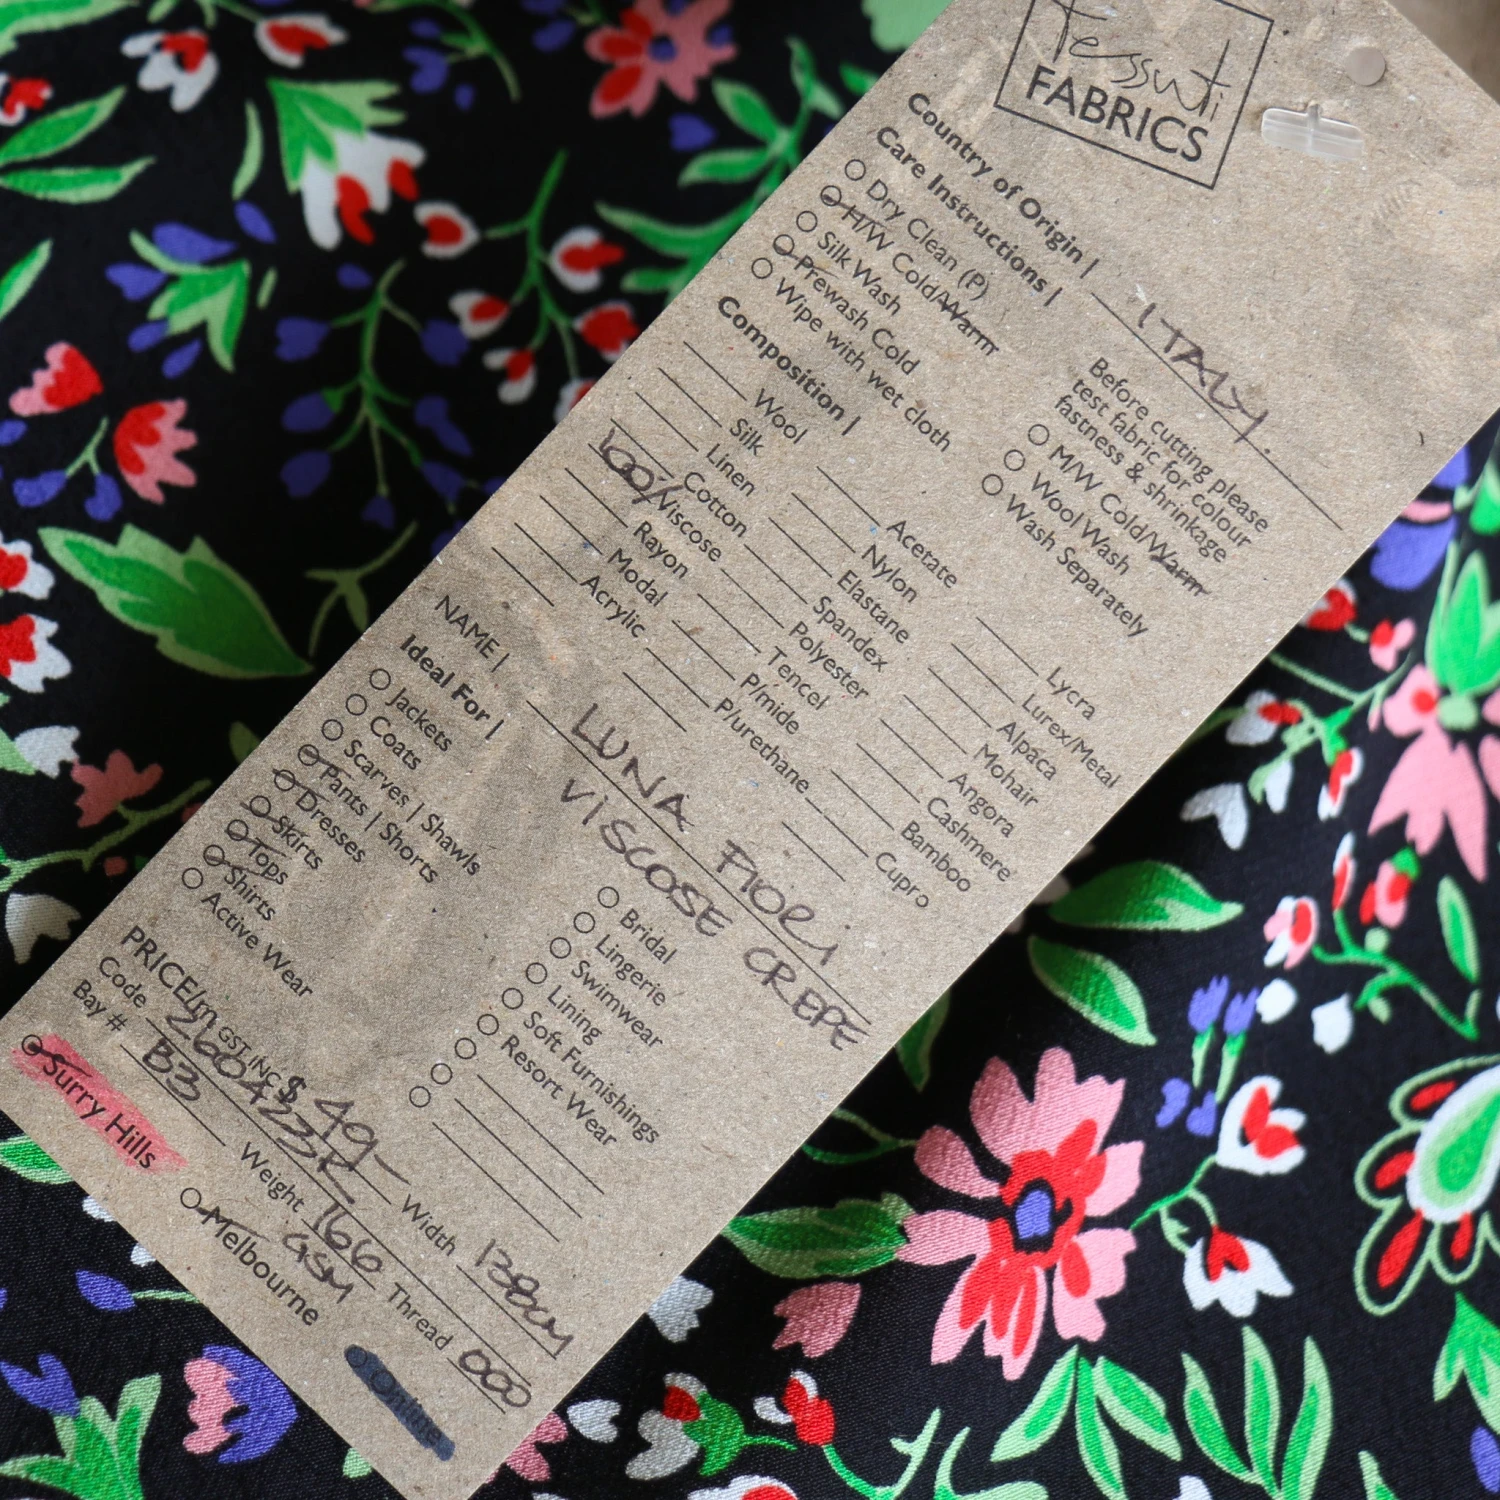 Tessuti
FABRICS
Country of Origin | ITALY.
Care Instructions |
Dry Clean (P)
H/W Cold/Warm
Silk Wash
Prewash Cold
Wipe with wet cloth
Before cutting please
test fabric for colour
fastness & shrinkage
M/W Cold/Warm
Wool Wash
Wash Separately
Composition |
Wool
Silk
Linen
Cotton
100% Viscose
Rayon
Modal
Acrylic
Acetate
Nylon
Elastane
Spandex
Polyester
Tencel
P/mide
P/urethane
Lycra
Lurex/Metal
Alpaca
Mohair
Angora
Cashmere
Bamboo
Cupro
NAME | LUNA FIORI
VISCOSE CREPE
Ideal For |
Jackets
Coats
Scarves | Shawls
Pants | Shorts
Dresses
Skirts
Tops
Shirts
Active Wear
Bridal
Lingerie
Swimwear
Lining
Soft Furnishings
Resort Wear
PRICE/m GST INC $ 49-
Code 260423R Width 138cm
Bay # B3 Weight 166 GSM Thread 000
Surry Hills
Melbourne
Online